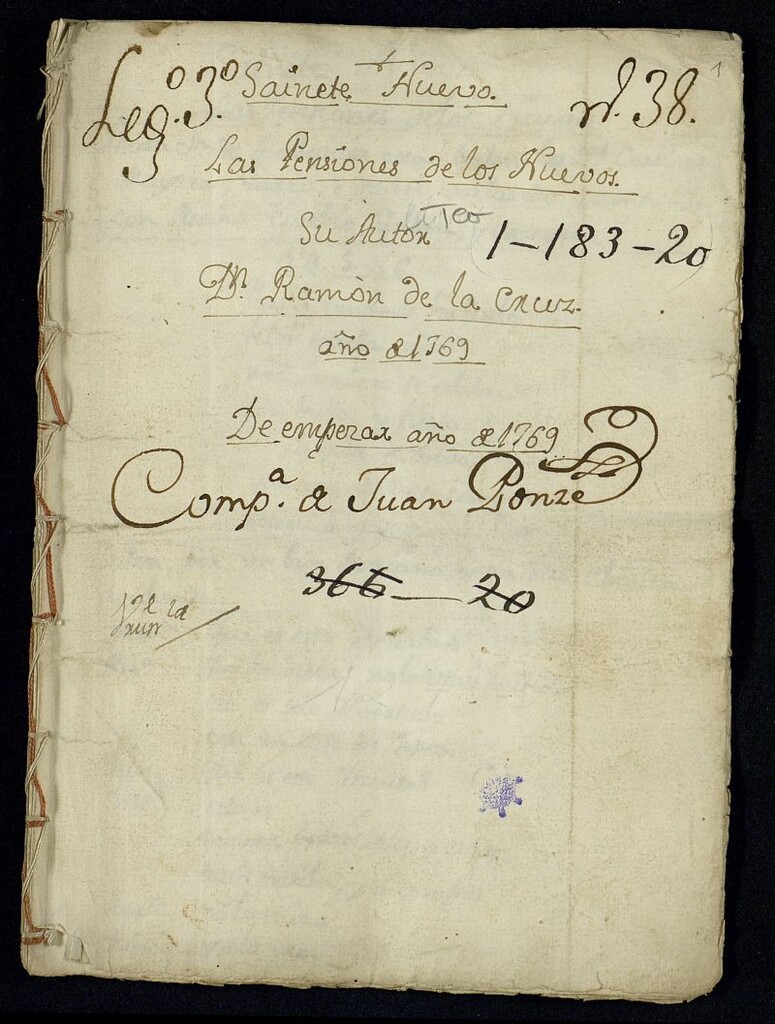 Leg.º 3.º Sainete Nuevo. nº. 38. 1
Las Pensiones de los Nuevos.
Teo
Su Autor 1-183-20
Dn. Ramòn de la Cruz.
año de 1769
De empezar año de 1769
Comp.a de Juan Ponze
366 — 20